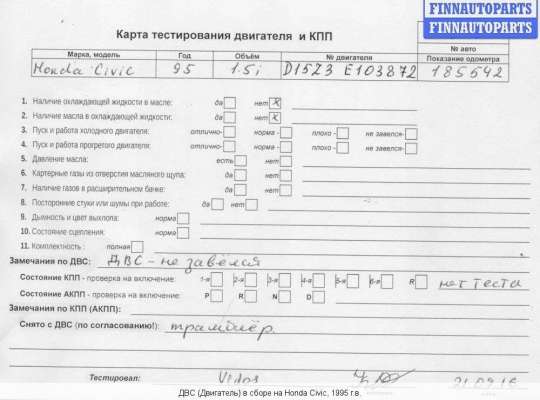 FINNAUTOPARTS
FINNAUTOPARTS
Карта тестирования двигателя и КПП
№ авто
Марка, модель Год Объём № двигателя Показание одометра
Honda Civic 95 1.5i D15Z3 E103872 185542
1. Наличие охлаждающей жидкости в масле: да нет x
2. Наличие масла в охлаждающей жидкости: да нет x
3. Пуск и работа холодного двигателя: отлично- норма - плохо - не завелся-
4. Пуск и работа прогретого двигателя: отлично- норма - плохо - не завелся-
5. Давление масла: есть нет
6. Картерные газы из отверстия масляного щупа: да нет
7. Наличие газов в расширительном бачке: да нет
8. Посторонние стуки или шумы при работе: да нет
9. Дымность и цвет выхлопа: норма
10. Состояние сцепления: норма
11. Комплектность : полная
Замечания по ДВС: ДВС - не завелся
Состояние КПП - проверка на включение: 1-я 2-я 3-я 4-я 5-я 6-я R нет теста
Состояние АКПП - проверка на включение: P R N D
Замечания по КПП (АКПП):
Снято с ДВС (по согласованию!): трамблёр.
Тестировал: 21.09.16
ДВС (Двигатель) в сборе на Honda Civic, 1995 г.в.